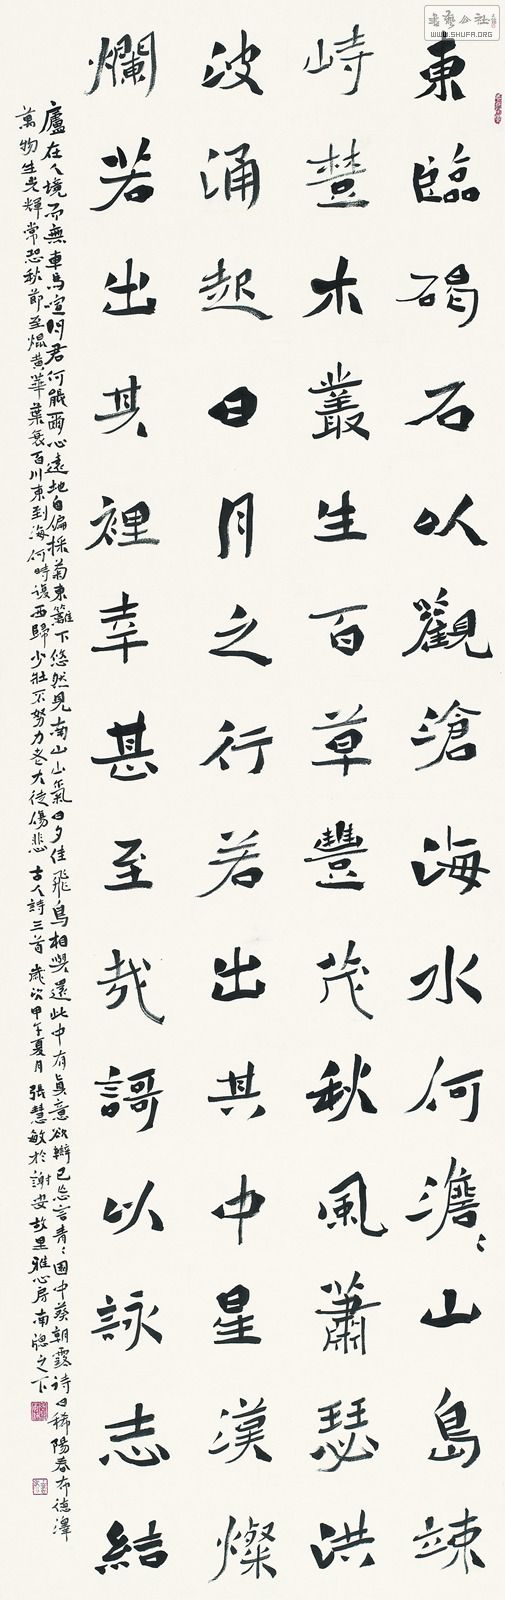 東臨碣石以觀滄海水何澹〻山島竦
峙豐木叢生百草豐茂秋風蕭瑟洪
波涌起日月之行若出其中星漢燦
爛若出其裡幸甚至哉謌以詠志結
廬在人境而無車馬喧問君何能爾心遠地自偏採菊東籬下悠然見南山山氣日夕佳飛鳥相與還此中有真意欲辯已忘言青〻園中葵朝露待日稀陽春布德澤
萬物生光輝常恐秋節至焜黃華葉衰百川東到海何時復西歸少壯不努力老大徒傷悲 古人詩三首 歲次甲午夏月 張慧敏於謝安故里雅心房南窗之下
書藝公社
WWW.SHUFA.ORG